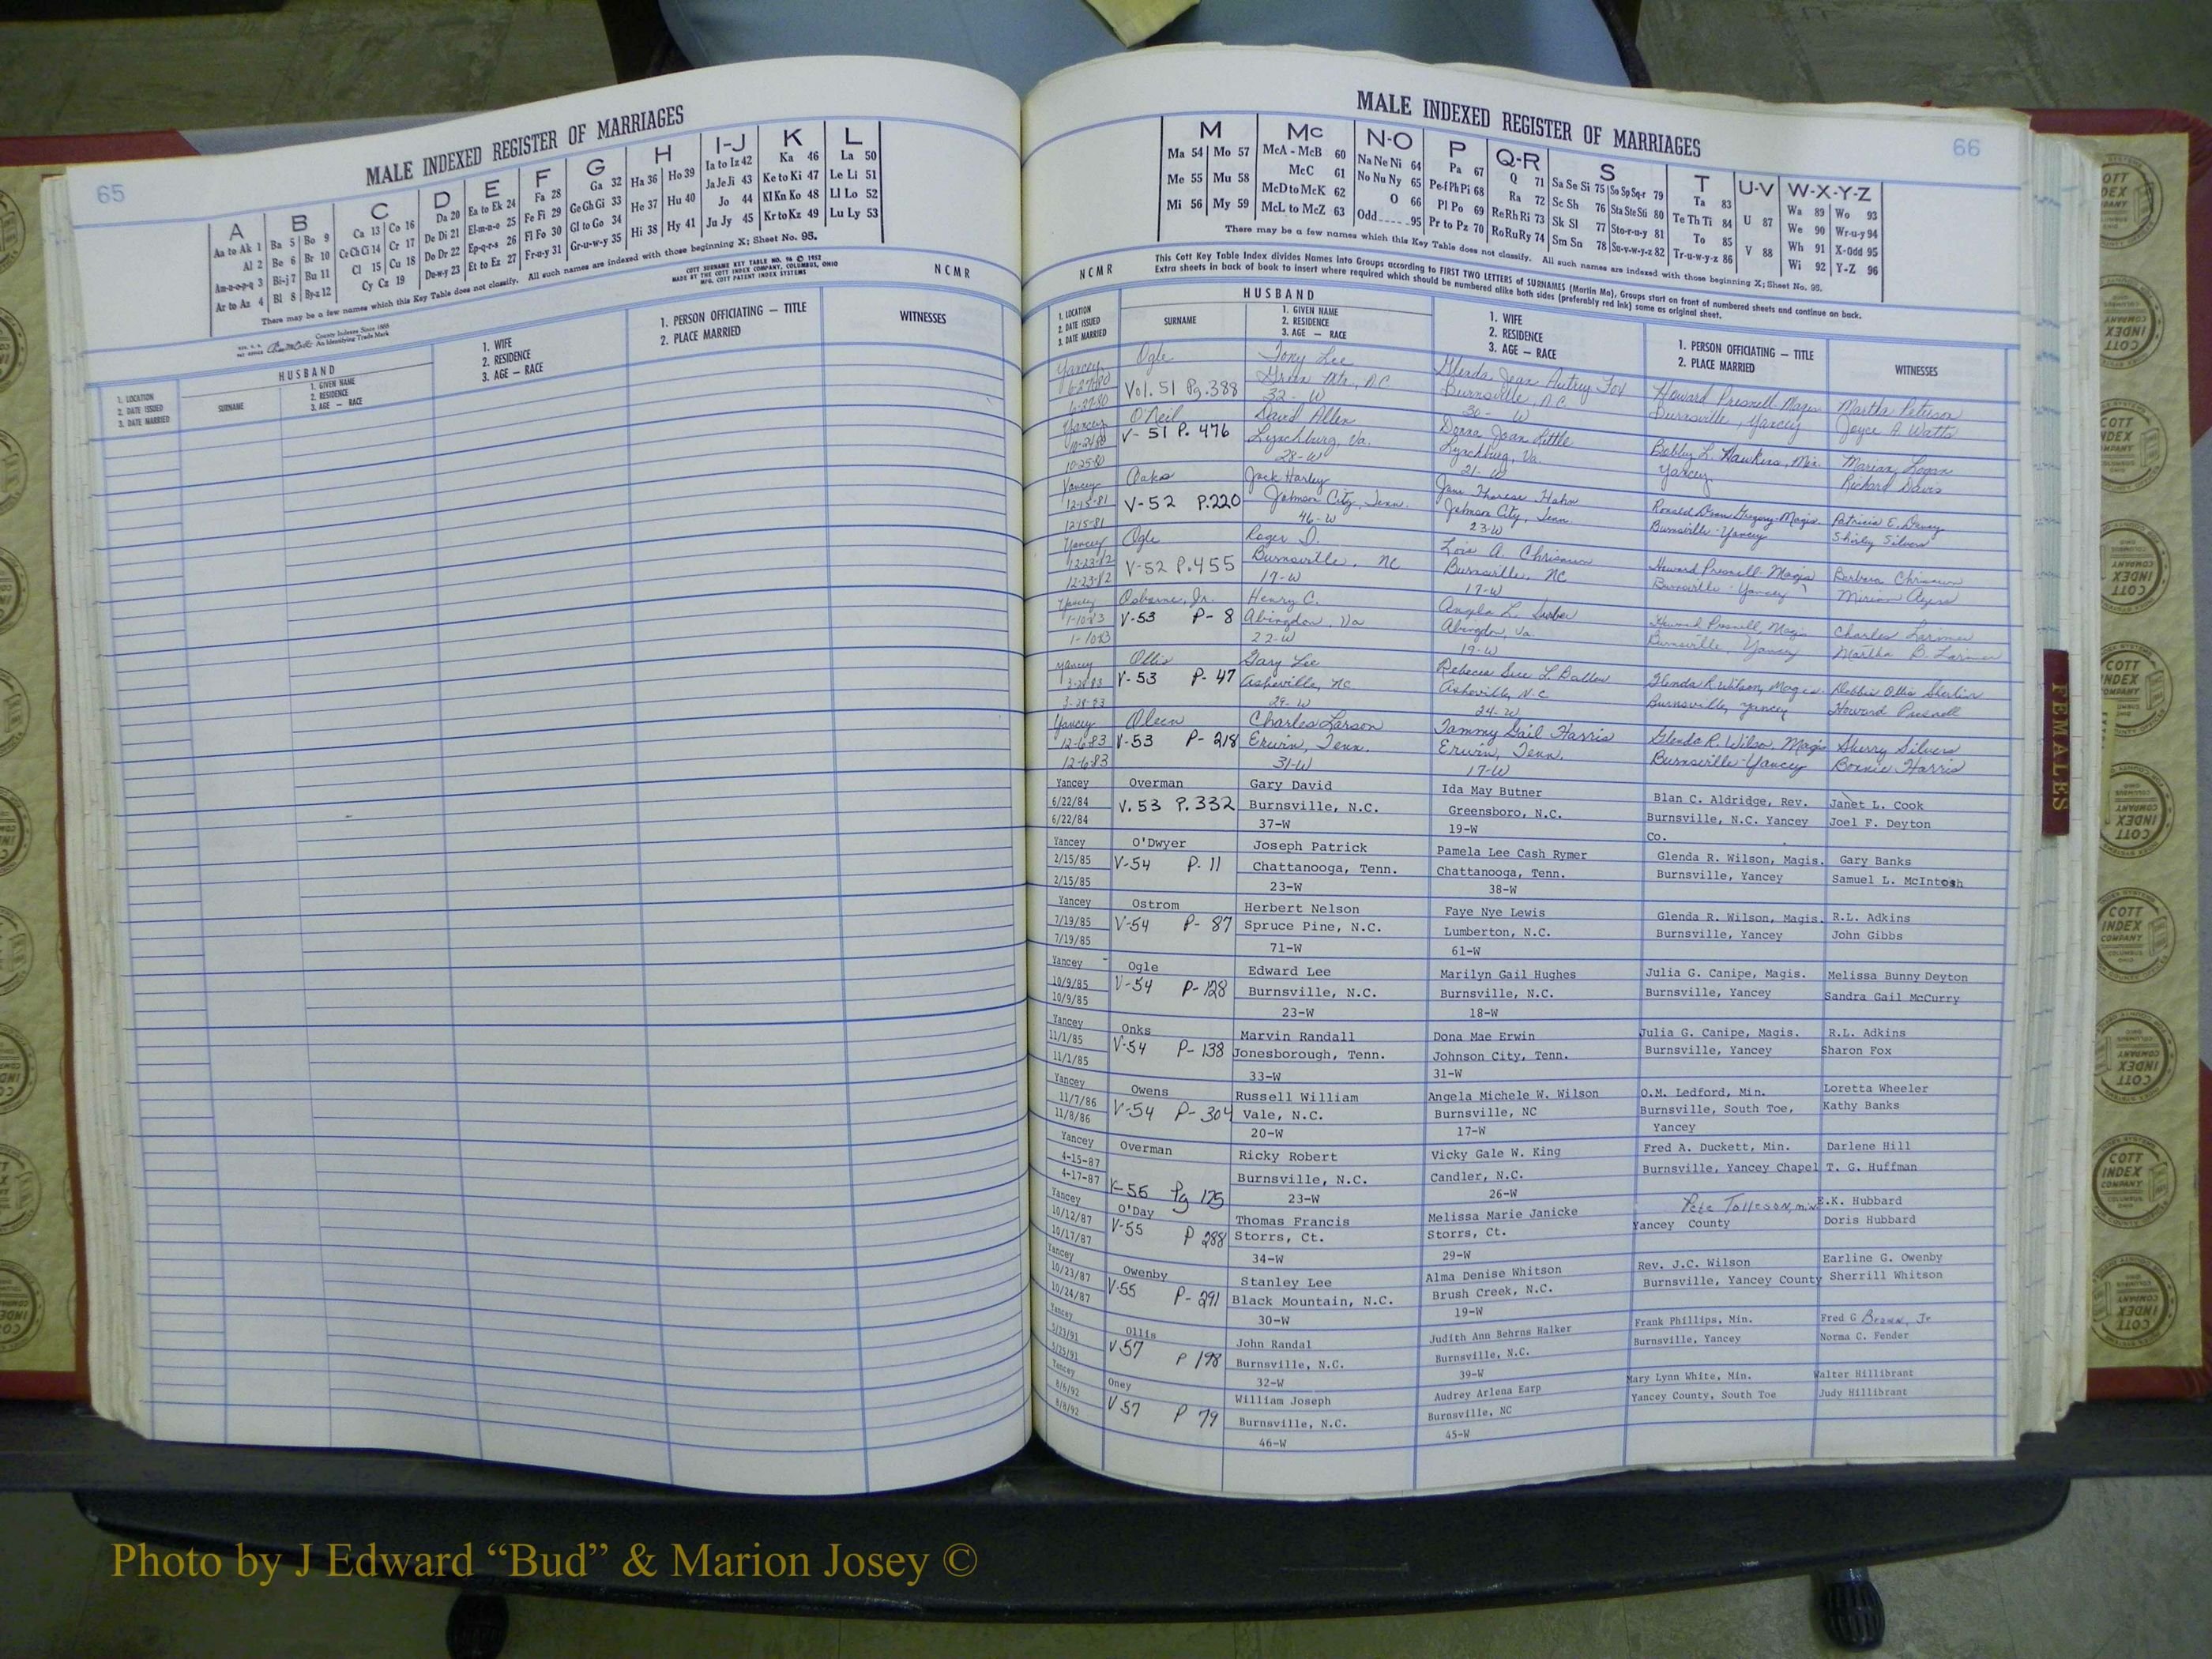 65
MALE INDEXED REGISTER OF MARRIAGES
A
Aa to Ak 1
Al 2
Am-n-o-p-q 3
Ar to Az 4
B
Ba 5 Bo 9
Be 6 Br 10
Bi-j 7 Bu 11
Bl 8 By-z 12
C
Ca 13 Co 16
Ce Ch Ci 14 Cr 17
Cl 15 Cu 18
Cy Cz 19
D
Da 20
De Di 21
Do Dr 22
Du-w-y 23
E
Ea to Ek 24
El-m-n-o 25
Ep-q-r-s 26
Et to Ez 27
F
Fa 28
Fe Fi 29
Fl Fo 30
Fr-u-y 31
G
Ga 32
Ge Gh Gi 33
Gl to Go 34
Gr-u-w-y 35
H
Ha 36 Ho 39
He 37 Hu 40
Hi 38 Hy 41
I-J
Ia to Iz 42
Ja Je Ji 43
Jo 44
Ju Jy 45
K
Ka 46
Ke to Ki 47
Kl Kn Ko 48
Kr to Kz 49
L
La 50
Le Li 51
Ll Lo 52
Lu Ly 53
There may be a few names which this Key Table does not classify. All such names are indexed with those beginning X; Sheet No. 95.
County Indexes Since 1888
An Identifying Trade Mark
COTT SURNAME KEY TABLE NO. 96 © 1952
MADE BY THE COTT INDEX COMPANY, COLUMBUS, OHIO
MFG. COTT PATENT INDEX SYSTEMS
NCMR
HUSBAND
1. LOCATION
2. DATE ISSUED
3. DATE MARRIED
SURNAME
1. GIVEN NAME
2. RESIDENCE
3. AGE — RACE
1. WIFE
2. RESIDENCE
3. AGE — RACE
1. PERSON OFFICIATING — TITLE
2. PLACE MARRIED
WITNESSES
MALE INDEXED REGISTER OF MARRIAGES
66
M
Ma 54 Mo 57
Me 55 Mu 58
Mi 56 My 59
Mc
McA - McB 60
McC 61
McD to McK 62
McL to McZ 63
N-O
Na Ne Ni 64
No Nu Ny 65
O 66
Odd 95
P
Pa 67
Pe-f Ph Pi 68
Pl Po 69
Pr to Pz 70
Q-R
Q 71
Ra 72
Re Rh Ri 73
Ro Ru Ry 74
S
Sa Se Si 75 So Sp Sq-r 79
Sc Sh 76 Sta Ste Sti 80
Sk Sl 77 Sto-r-u-y 81
Sm Sn 78 Su-v-w-y-z 82
T
Ta 83
Te Th Ti 84
To 85
Tr-u-w-y-z 86
U-V
U 87
V 88
W-X-Y-Z
Wa 89 Wo 93
We 90 Wr-u-y 94
Wh 91 X-Odd 95
Wi 92 Y-Z 96
There may be a few names which this Key Table does not classify. All such names are indexed with those beginning X; Sheet No. 95.
This Cott Key Table Index divides Names into Groups according to FIRST TWO LETTERS of SURNAMES (Martin Ma), Groups start on front of numbered sheets and continue on back.
Extra sheets in back of book to insert where required which should be numbered alike both sides (preferably red ink) same as original sheet.
NCMR
HUSBAND
1. LOCATION
2. DATE ISSUED
3. DATE MARRIED
SURNAME
1. GIVEN NAME
2. RESIDENCE
3. AGE — RACE
1. WIFE
2. RESIDENCE
3. AGE — RACE
1. PERSON OFFICIATING — TITLE
2. PLACE MARRIED
WITNESSES
Yancey Ogle Tony Lee Glenda Jean Autrey Fox Howard Presnell Magis Martha Peterson
6-27-80 Vol. 51 Pg. 388 Green Mtn, N.C. Burnsville, N.C. Burnsville, Yancey Joyce A. Watts
6-27-80 32- W 30- W
Yancey O'Neil David Allen Donna Joan Little Bobby L. Hawkins, Min. Marian Logan
10-24-80 V- 51 P. 476 Lynchburg, Va. Lynchburg, Va. Yancey Richard Davis
10-25-80 28-W 21- W
Yancey Oaks Jack Harley Jane Therese Hahn Ronald Dean Gregory-Magis. Patricia E. Dancy
12-15-81 V-52 P.220 Johnson City, Tenn. Johnson City, Tenn. Burnsville-Yancey Shirley Silvers
12-15-81 46-W 23-W
Yancey Ogle Roger D. Lois A. Chrisawn Howard Presnell-Magis Barbara Chrisawn
12-23-82 V-52 P.455 Burnsville, NC Burnsville, NC Burnsville-Yancey Miriam Ayers
12-23-82 17-W 17-W
Yancey Osborne, Jr. Henry C. Angela L. Howard Presnell, Magis Charles Larimer
1-10-83 V-53 P- 8 Abingdon, Va Abingdon, Va. Burnsville, Yancey Martha B. Larimer
1-10-83 22-W 19-W
Yancey Ollis Gary Lee Rebecca Sue L. Ballew Glenda R. Wilson, Magis. Debbie Ollis Sherlin
3-28-83 V-53 P- 47 Asheville, NC Asheville, N.C. Burnsville, Yancey Howard Presnell
3-28-83 29-W 24-W
Yancey Oleen Charles Larson Tammy Gail Harris Glenda R. Wilson, Magis Sherry Silvers
12-6-83 V-53 P- 218 Erwin, Tenn. Erwin, Tenn. Burnsville-Yancey Bonnie Harris
12-6-83 31-W 17-W
Yancey Overman Gary David Ida May Butner Blan C. Aldridge, Rev. Janet L. Cook
6/22/84 V. 53 P. 332 Burnsville, N.C. Greensboro, N.C. Burnsville, N.C. Yancey Joel F. Deyton
6/22/84 37-W 19-W Co.
Yancey O'Dwyer Joseph Patrick Pamela Lee Cash Rymer Glenda R. Wilson, Magis. Gary Banks
2/15/85 V-54 P. 11 Chattanooga, Tenn. Chattanooga, Tenn. Burnsville, Yancey Samuel L. McIntosh
2/15/85 23-W 38-W
Yancey Ostrom Herbert Nelson Faye Nye Lewis Glenda R. Wilson, Magis. R.L. Adkins
7/19/85 V-54 P- 87 Spruce Pine, N.C. Lumberton, N.C. Burnsville, Yancey John Gibbs
7/19/85 71-W 61-W
Yancey Ogle Edward Lee Marilyn Gail Hughes Julia G. Canipe, Magis. Melissa Bunny Deyton
10/9/85 V-54 P- 128 Burnsville, N.C. Burnsville, N.C. Burnsville, Yancey Sandra Gail McCurry
10/9/85 23-W 18-W
Yancey Onks Marvin Randall Dona Mae Erwin Julia G. Canipe, Magis. R.L. Adkins
11/1/85 V-54 P- 138 Jonesborough, Tenn. Johnson City, Tenn. Burnsville, Yancey Sharon Fox
11/1/85 33-W 31-W
Yancey Owens Russell William Angela Michele W. Wilson O.M. Ledford, Min. Loretta Wheeler
11/7/86 V-54 P- 304 Vale, N.C. Burnsville, NC Burnsville, South Toe, Kathy Banks
11/8/86 20-W 17-W Yancey
Yancey Overman Ricky Robert Vicky Gale W. King Fred A. Duckett, Min. Darlene Hill
4-15-87 Burnsville, N.C. Candler, N.C. Burnsville, Yancey Chapel T. G. Huffman
4-17-87 Pg 175 23-W 26-W
Yancey O'Day Thomas Francis Melissa Marie Janicke Pete Tolleson, min E.K. Hubbard
10/12/87 V-55 P 288 Storrs, Ct. Storrs, Ct. Yancey County Doris Hubbard
10/17/87 34-W 29-W
Yancey Owenby Stanley Lee Alma Denise Whitson Rev. J.C. Wilson Earline G. Owenby
10/23/87 V-55 P- 291 Black Mountain, N.C. Brush Creek, N.C. Burnsville, Yancey County Sherrill Whitson
10/24/87 30-W 19-W
Yancey Ollis John Randal Judith Ann Behrns Halker Frank Phillips, Min. Fred G Brown, Jr
5/23/91 V 57 P 198 Burnsville, N.C. Burnsville, N.C. Burnsville, Yancey Norma C. Fender
5/25/91 32-W 39-W
Yancey Oney William Joseph Audrey Arlena Earp Mary Lynn White, Min. Walter Hillibrant
8/6/92 V 57 P 79 Burnsville, N.C. Burnsville, NC Yancey County, South Toe Judy Hillibrant
8/8/92 46-W 45-W
FEMALES
COTT
INDEX
COMPANY
Photo by J Edward “Bud” & Marion Josey ©